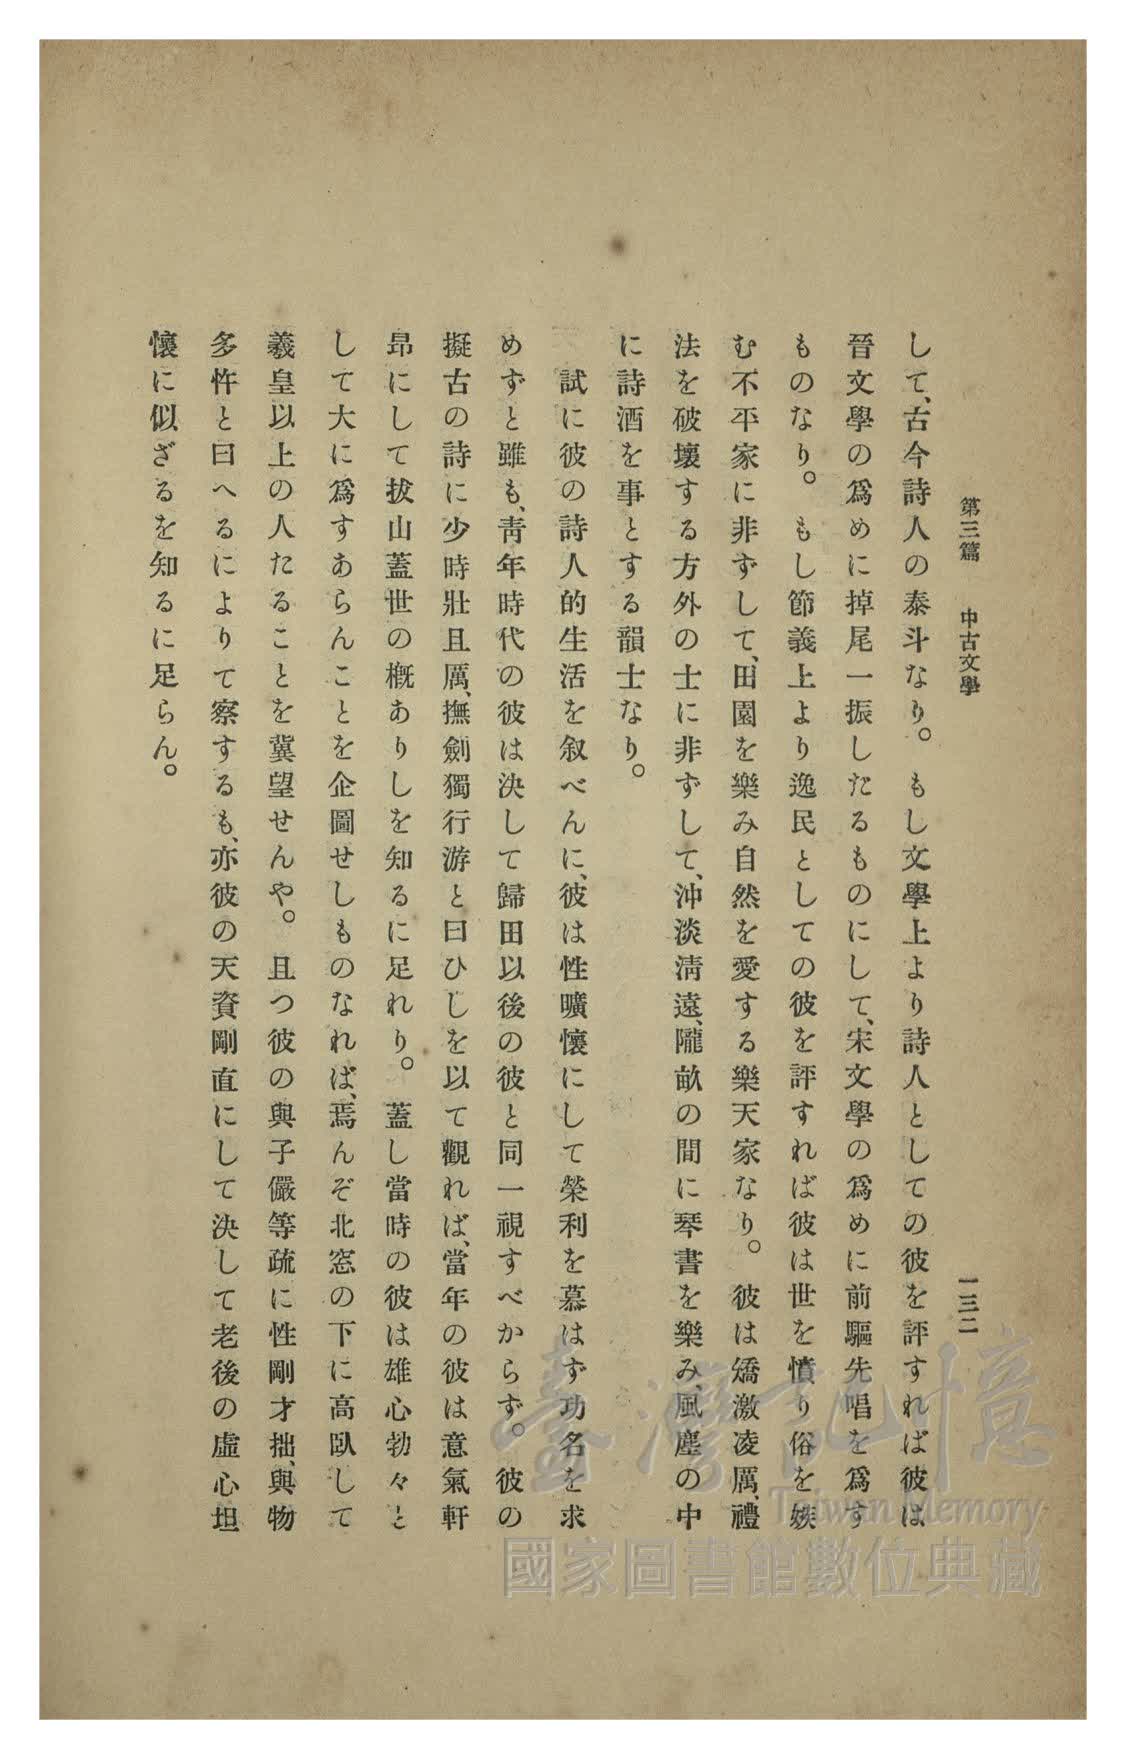 第三篇　中古文學　一三二
して、古今詩人の泰斗なり。もし文學上より詩人としての彼を評すれば彼は
晉文學の爲めに掉尾一振したるものにして、宋文學の爲めに前驅先唱を爲す
ものなり。もし節義上より逸民としての彼を評すれば彼は世を憤り俗を嫉
む不平家に非ずして、田園を樂み自然を愛する樂天家なり。彼は矯激凌厲、禮
法を破壞する方外の士に非ずして、沖淡淸遠、隴畝の間に琴書を樂み、風塵の中
に詩酒を事とする韻士なり。
試に彼の詩人的生活を叙べんに、彼は性曠懷にして榮利を慕はず功名を求
めずと雖も、靑年時代の彼は決して歸田以後の彼と同一視すべからず。彼の
擬古の詩に少時壯且厲、撫劍獨行游と曰ひしを以て觀れば、當年の彼は意氣軒
昂にして拔山蓋世の槪ありしを知るに足れり。蓋し當時の彼は雄心勃々と
して大に爲すあらんことを企圖せしものなれば、焉んぞ北窓の下に高臥して
羲皇以上の人たることを冀望せんや。且つ彼の與子儼等疏に性剛才拙、與物
多忤と曰へるによりて察するも、亦彼の天資剛直にして決して老後の虛心坦
懷に似ざるを知るに足らん。
臺灣記憶
Taiwan Memory
國家圖書館數位典藏